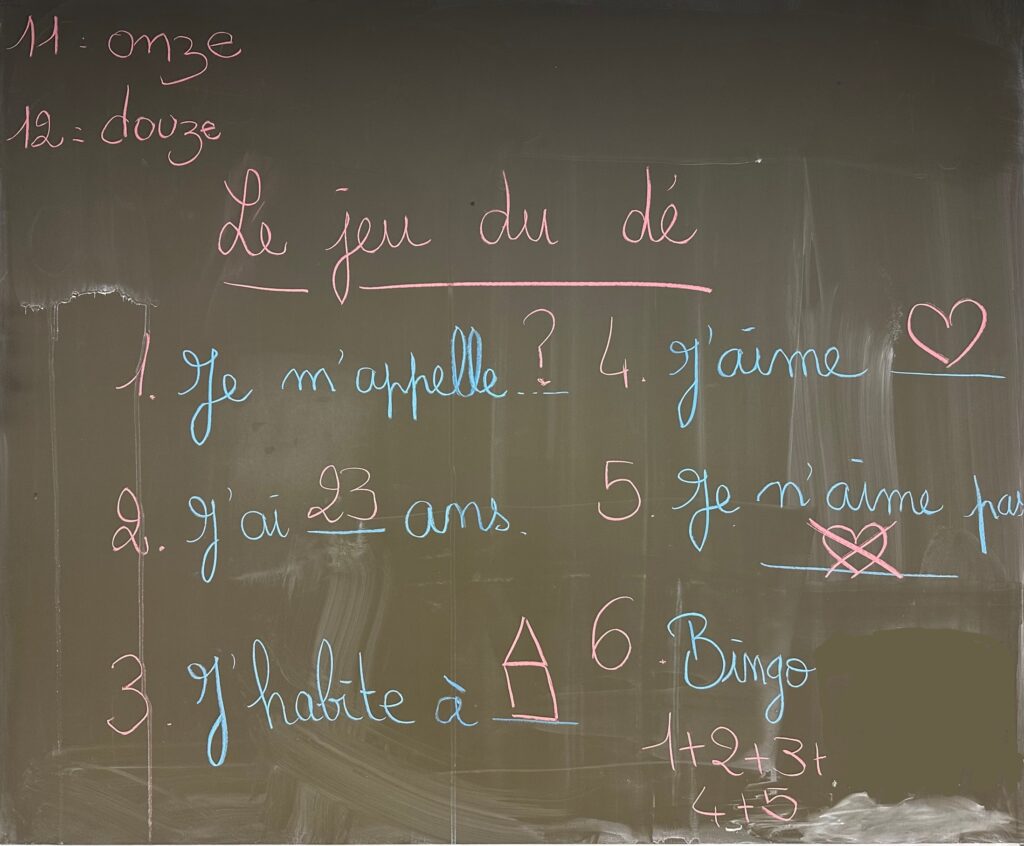 11 = onze
12 = douze
Le jeu du dé
1. Je m'appelle ...?...
2. J'ai 23 ans.
3. J'habite à
4. J'aime
5. Je n'aime pas
6. Bingo
1+2+3+
4+5